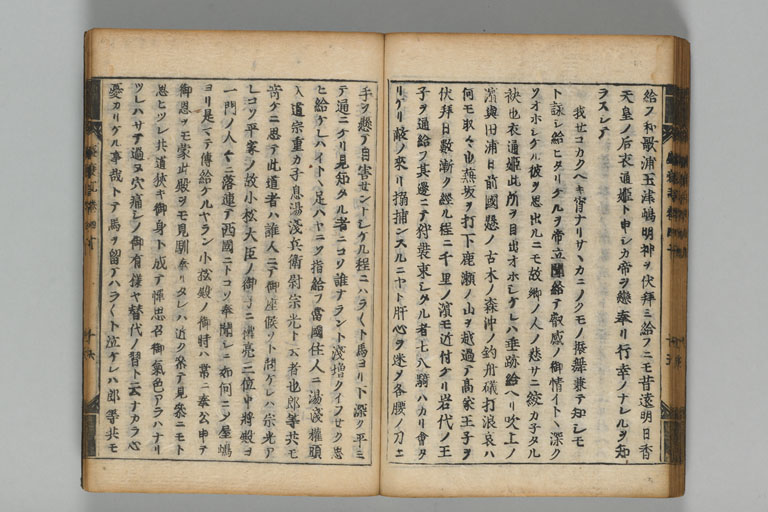 給フ和歌浦玉津嶋明神ヲ伏拜ミ給フニモ昔遠明日香
天皇ノ后衣通姫ト申シカ帝ヲ戀奉リ行幸ノナレルヲ知
ラスシテ
我セコカクヘキ宵ナリサヽカニノクモノ振舞兼テ知シモ
ト詠シ給ヒタリケルヲ帝立聞給テ叡感ノ御情イトヽ深ク
ソオホシケル彼ヲ思出ルニモ故郷ノ人ノ悲サニ絞カ子タル
袂也衣通姫此所ヲ目出オホシケレハ垂跡給ヘリ吹上ノ
濱與田浦日前國懸ノ古木ノ森沖ノ釣舟礒打浪哀ハ
何モ取々也蕪坂ヲ打下鹿瀬ノ山ヲ越過テ高家王子ヲ
伏拜日數漸ク經ル程ニ千里ノ濱モ近付ケリ岩代ノ王
子ヲ通給フ其邊ニテ狩裝束シタル者七八騎ハカリ會タ
リケリ敵ノ來リ搦捕ンスルニヤト肝心ヲ迷タ各腰ノ刀ニ
手ヲ懸テ自害セントシケル程ニハラ〱ト馬ヨリ下深ク平ミ
テ通ニケリ見知タル者ニコソ誰ナラント淺増クイフセク思
ヒ給ケレハイトヽ足ハヤニソ指給フ當國住人ニ湯淺權頭
入道宗重カ子息湯淺兵衛尉宗光ト云者也郎等共モ
奇ニ思テ此道者ハ誰人ニテ御座候ソト問ケレハ宗光ア
レコソ平家ノ故小松大臣ノ御子ニ權亮三位中將殿ヨ
一門ノ人々ニ落連テ西國ニトコソ奉聞シニ如何ニシテ屋嶋
ヨリ是マテ傳給ケルヤラン小松殿ノ御時ハ常ニ奉公申テ
御恩ヲモ蒙此殿ヲモ見馴奉リタレハ近ク參テ見參ニモト
思ヒツレ共道狹キ御身ト成テ憚思召御氣色アラハナリ
ツレハサテ過ヌ穴痛シノ御有樣ヤ替代ノ習ト云ナカラ心
憂カリケル事哉トテ馬ヲ留テハラ〱ト泣ケレハ郎等共モ